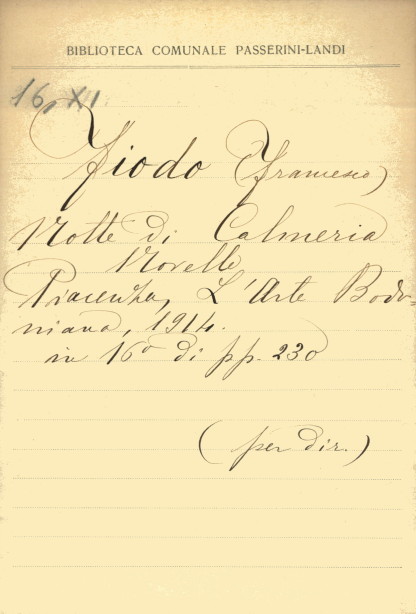 BIBLIOTECA COMUNALE PASSERINI-LANDI
16, XI
Fiodo (Francesco)
Notte di Calmeria
Novelle
Piacenza, L'Arte Bodo=
niana, 1914.
in 16º di pp. 230
(per dir.)